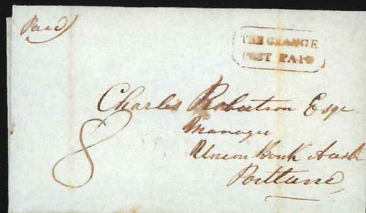 Paid
THE GRANGE
POST PAID
Charles Robertson Esqr
Manager
Union Bank Aust
8
Portland